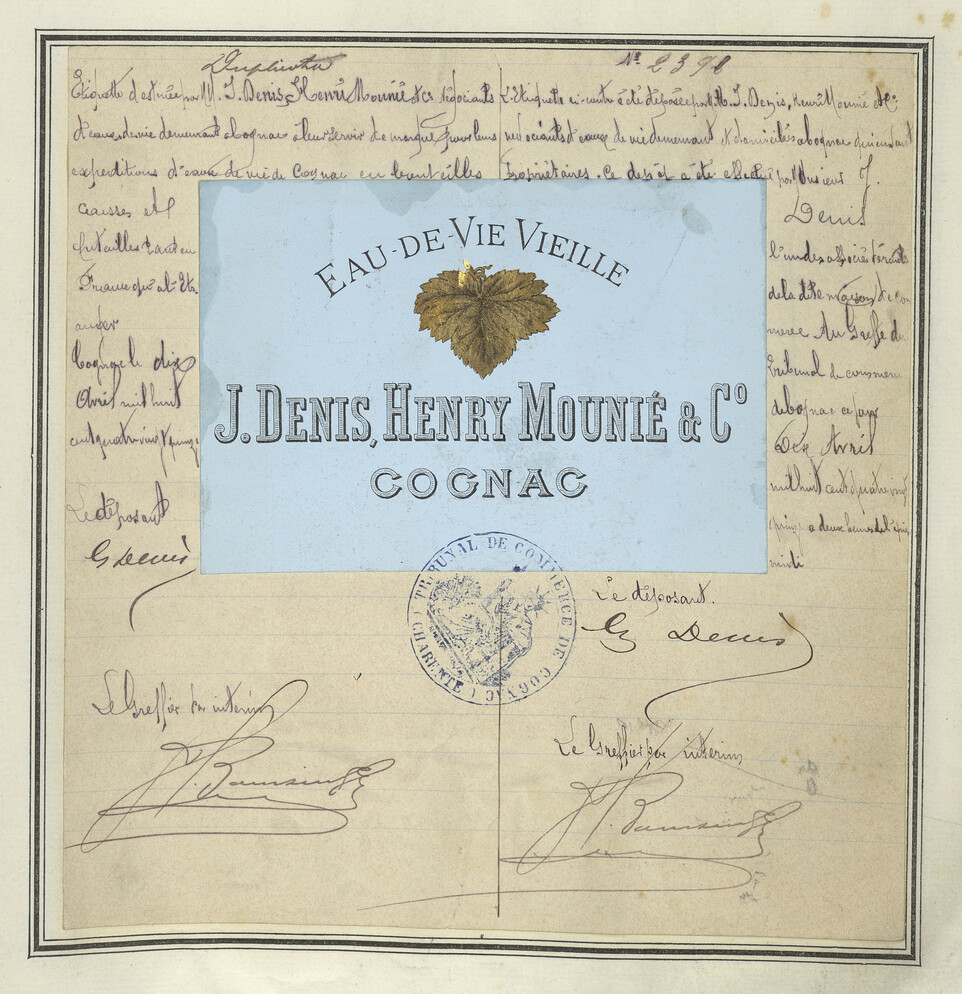 Duplicata
Etiquette destinée par MM. J. Denis, Henri Mounié & Cie Négociants
d'eaux de vie demeurant à Cognac à leur servir de marque pour leurs
expéditions d'eaux de vie de Cognac en bouteilles
caisses et
futailles tant en
France qu'à l'Etr
anger
Cognac le dix
Avril mil huit
cent quatre vingt quinze
Le déposant
G Denis
Le Greffier par intérim
No 2398
L'Etiquette ci-contre a été déposée par MM. J. Denis, Henri Mounié & Cie
négociants d'eaux de vie demeurant et domiciliés à Cognac qui en sont
Propriétaires. Ce dépôt a été effectué par Monsieur J.
Denis
l'un des associés gérants
de la dite maison de com
merce Au Greffe du
Tribunal de commerce
de Cognac ce jour
Dix Avril
mil huit cent quatre vingt
quinze à deux heures de l'après
midi
Le déposant.
G Denis
Le Greffier par intérim
EAU-DE-VIE VIEILLE
J. DENIS, HENRY MOUNIÉ & Co
COGNAC
TRIBUNAL DE COMMERCE DE COGNAC (CHARENTE)